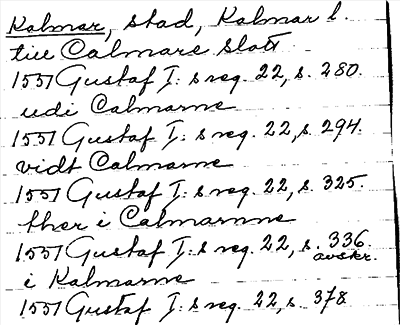 Kalmar, stad, Kalmar l.
till Calmare Slott
1551 Gustaf I:s reg. 22, s. 280.
udi Calmarne
1551 Gustaf I:s reg. 22, s. 294.
vidt Calmarne
1551 Gustaf I:s reg. 22, s. 325.
ther i Calmarnne
1551 Gustaf I:s reg. 22, s. 336.
avskr.
i Kalmarne
1551 Gustaf I:s reg. 22, s. 378